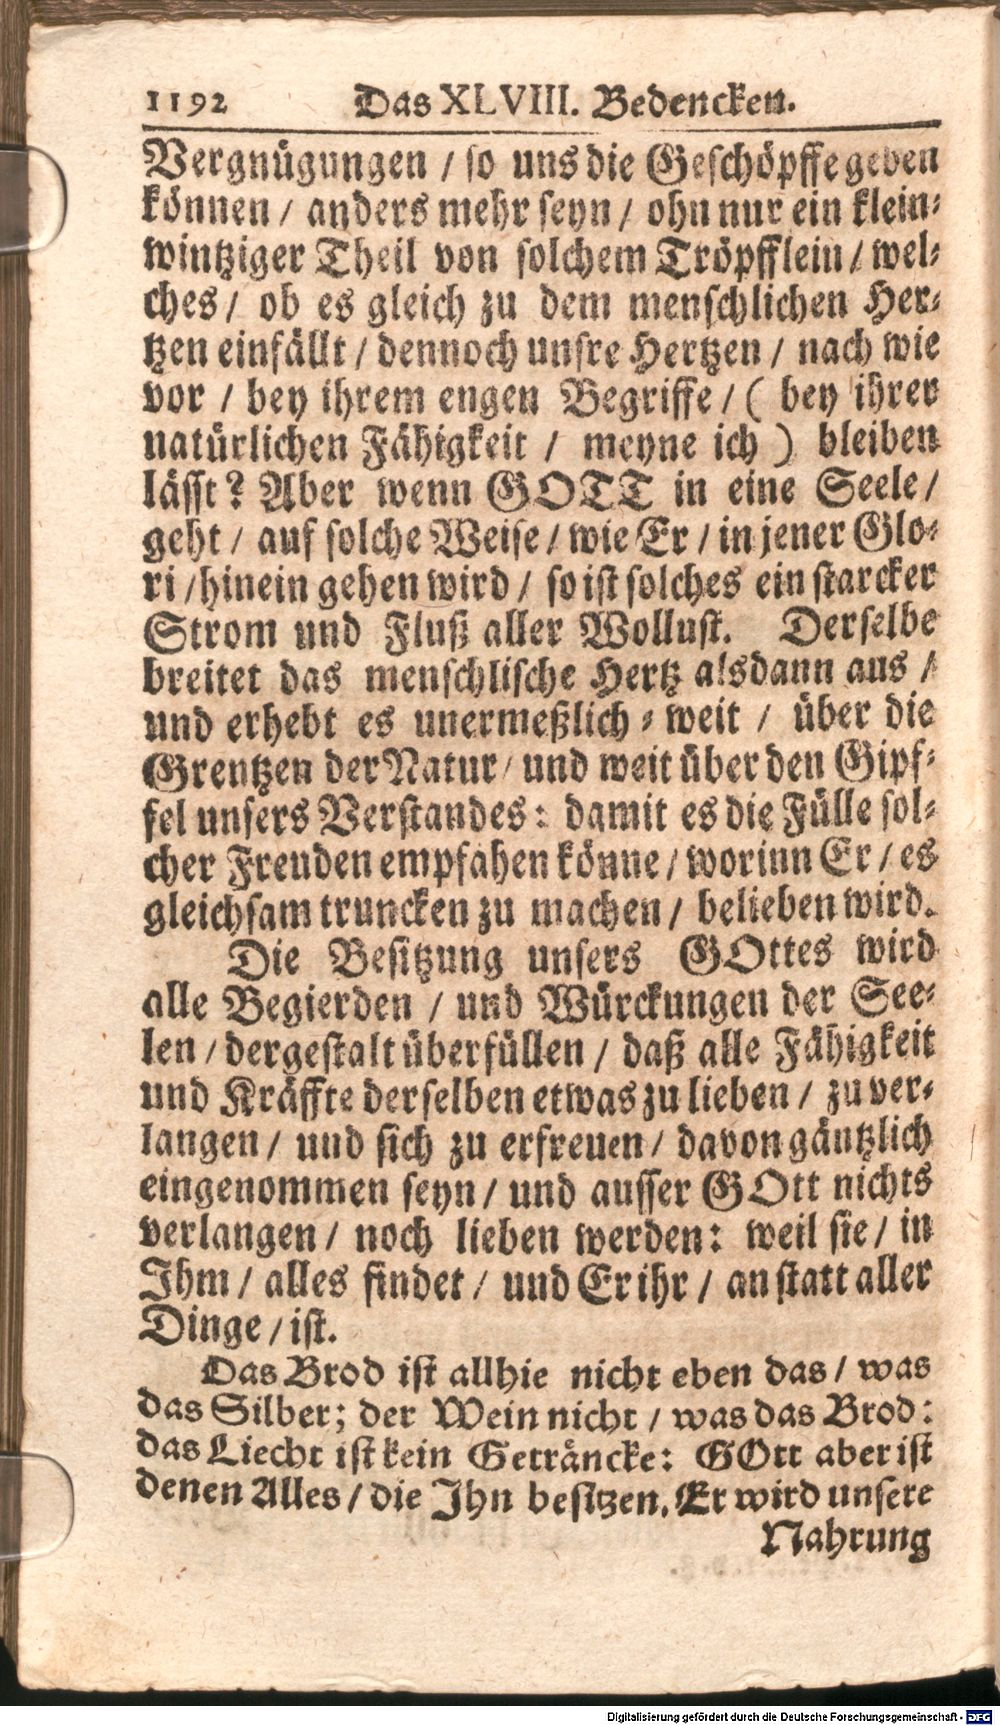 1192 Das XLVIII. Bedencken.
Vergnügungen / so uns die Geschöpffe geben
können / anders mehr seyn / ohn nur ein klein-
wintziger Theil von solchem Tröpfflein / wel-
ches / ob es gleich zu dem menschlichen Her-
tzen einfällt / dennoch unsre Hertzen / nach wie
vor / bey ihrem engen Begriffe / ( bey ihrer
natürlichen Fähigkeit / meyne ich ) bleiben
lässt? Aber wenn GOTT in eine Seele /
geht / auf solche Weise / wie Er / in jener Glo-
ri / hinein gehen wird / so ist solches ein starcker
Strom und Fluß aller Wollust. Derselbe
breitet das menschlische Hertz alsdann aus /
und erhebt es unermeßlich-weit / über die
Grentzen der Natur / und weit über den Gipf-
fel unsers Verstandes: damit es die Fülle sol-
cher Freuden empfahen könne / worinn Er / es
gleichsam truncken zu machen / belieben wird.
Die Besitzung unsers GOttes wird
alle Begierden / und Würckungen der See-
len / dergestalt überfüllen / daß alle Fähigkeit
und Kräffte derselben etwas zu lieben / zu ver-
langen / und sich zu erfreuen / davon gäntzlich
eingenommen seyn / und ausser GOtt nichts
verlangen / noch lieben werden: weil sie / in
Ihm / alles findet / und Er ihr / an statt aller
Dinge / ist.
Das Brod ist allhie nicht eben das / was
das Silber; der Wein nicht / was das Brod:
das Liecht ist kein Geträncke: GOtt aber ist
denen Alles / die Ihn besitzen. Er wird unsere
Nahrung
Digitalisierung gefördert durch die Deutsche Forschungsgemeinschaft - DFG